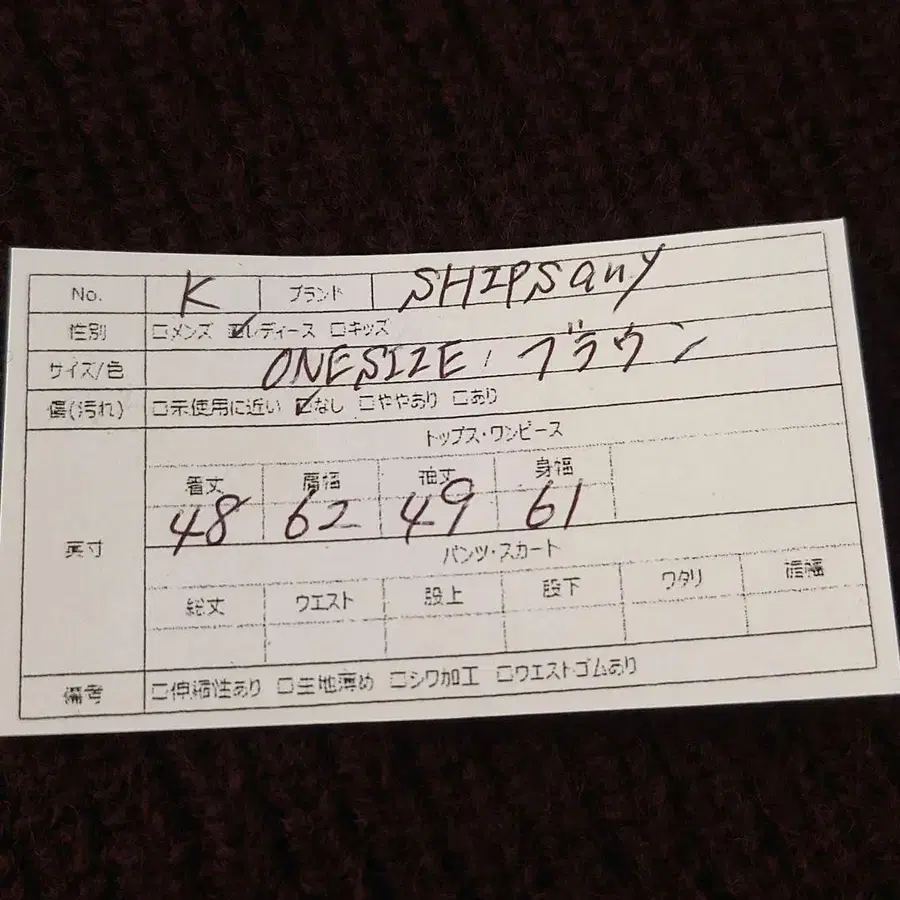 No. K ブランド SHIPS any
性別 □メンズ ☑レディース □キッズ
サイズ/色 ONE SIZE / ブラウン
傷(汚れ) □未使用に近い ☑なし □ややあり □あり
トップス・ワンピース
着丈 肩幅 袖丈 身幅
48 62 49 61
実寸
パンツ・スカート
総丈 ウエスト 股上 股下 ワタリ 裾幅
備考 □伸縮性あり □生地薄め □シワ加工 □ウエストゴムあり